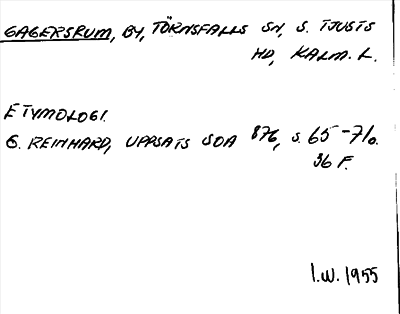 GAGERSRUM, BY, TÖRNSFALLS SN, S. TJUSTS
HD, KALM. L.
ETYMOLOGI.
G. REINHARD, UPPSATS SOA 876, S. 65-71.
36 F.
I.W. 1955